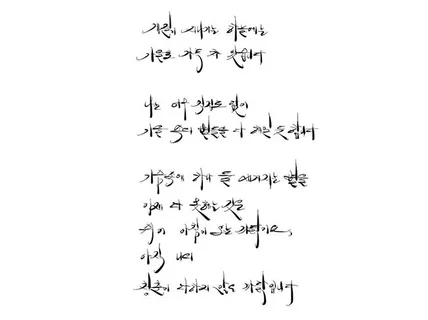 계절이 지나가는 하늘에는
가을로 가득 차 있습니다
나는 아무 걱정도 없이
가을 속의 별들을 다 헤일 듯합니다
가슴속에 하나 둘 새겨지는 별을
이제 다 못헤는 것은
쉬이 아침이 오는 까닭이오,
아직 나의
청춘이 다하지 않은 까닭입니다